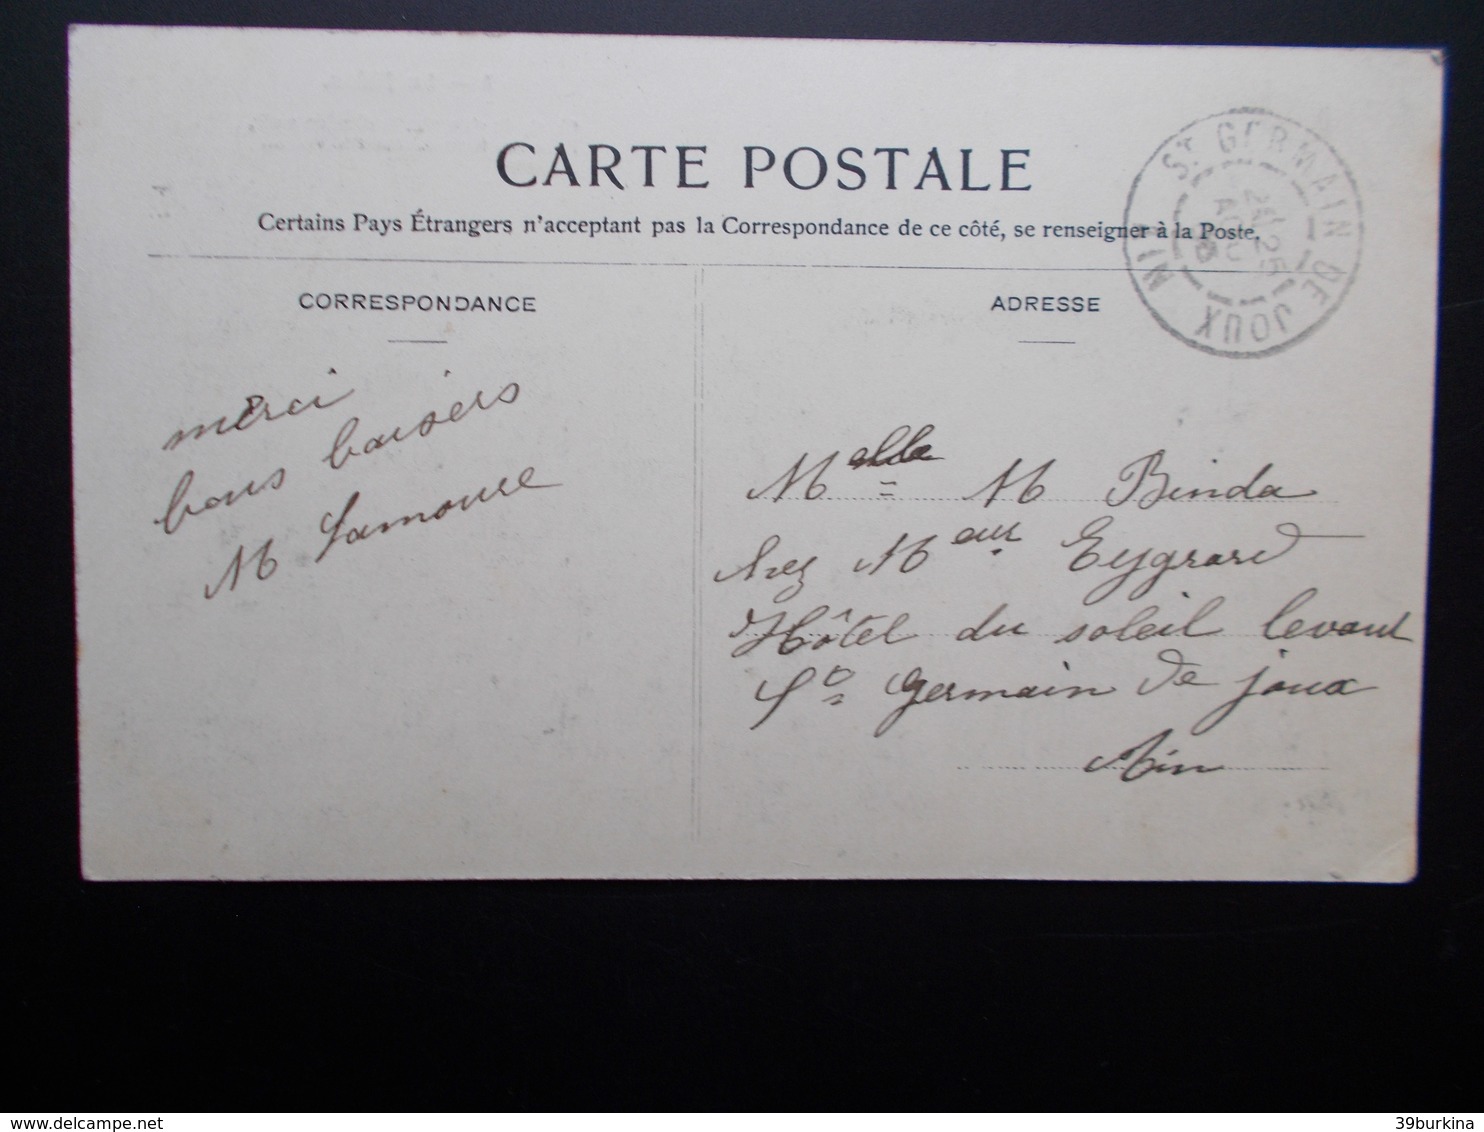 CARTE POSTALE
Certains Pays Étrangers n'acceptant pas la Correspondance de ce côté, se renseigner à la Poste.
CORRESPONDANCE
merci
bons baisers
M Lamoure
ADRESSE
Melle M Binda
chez Meur Eygrard
Hôtel du soleil levant
St germain de joux
Ain
ST GERMAIN DE JOUX
AIN
25
www.delcampe.net
39burkina